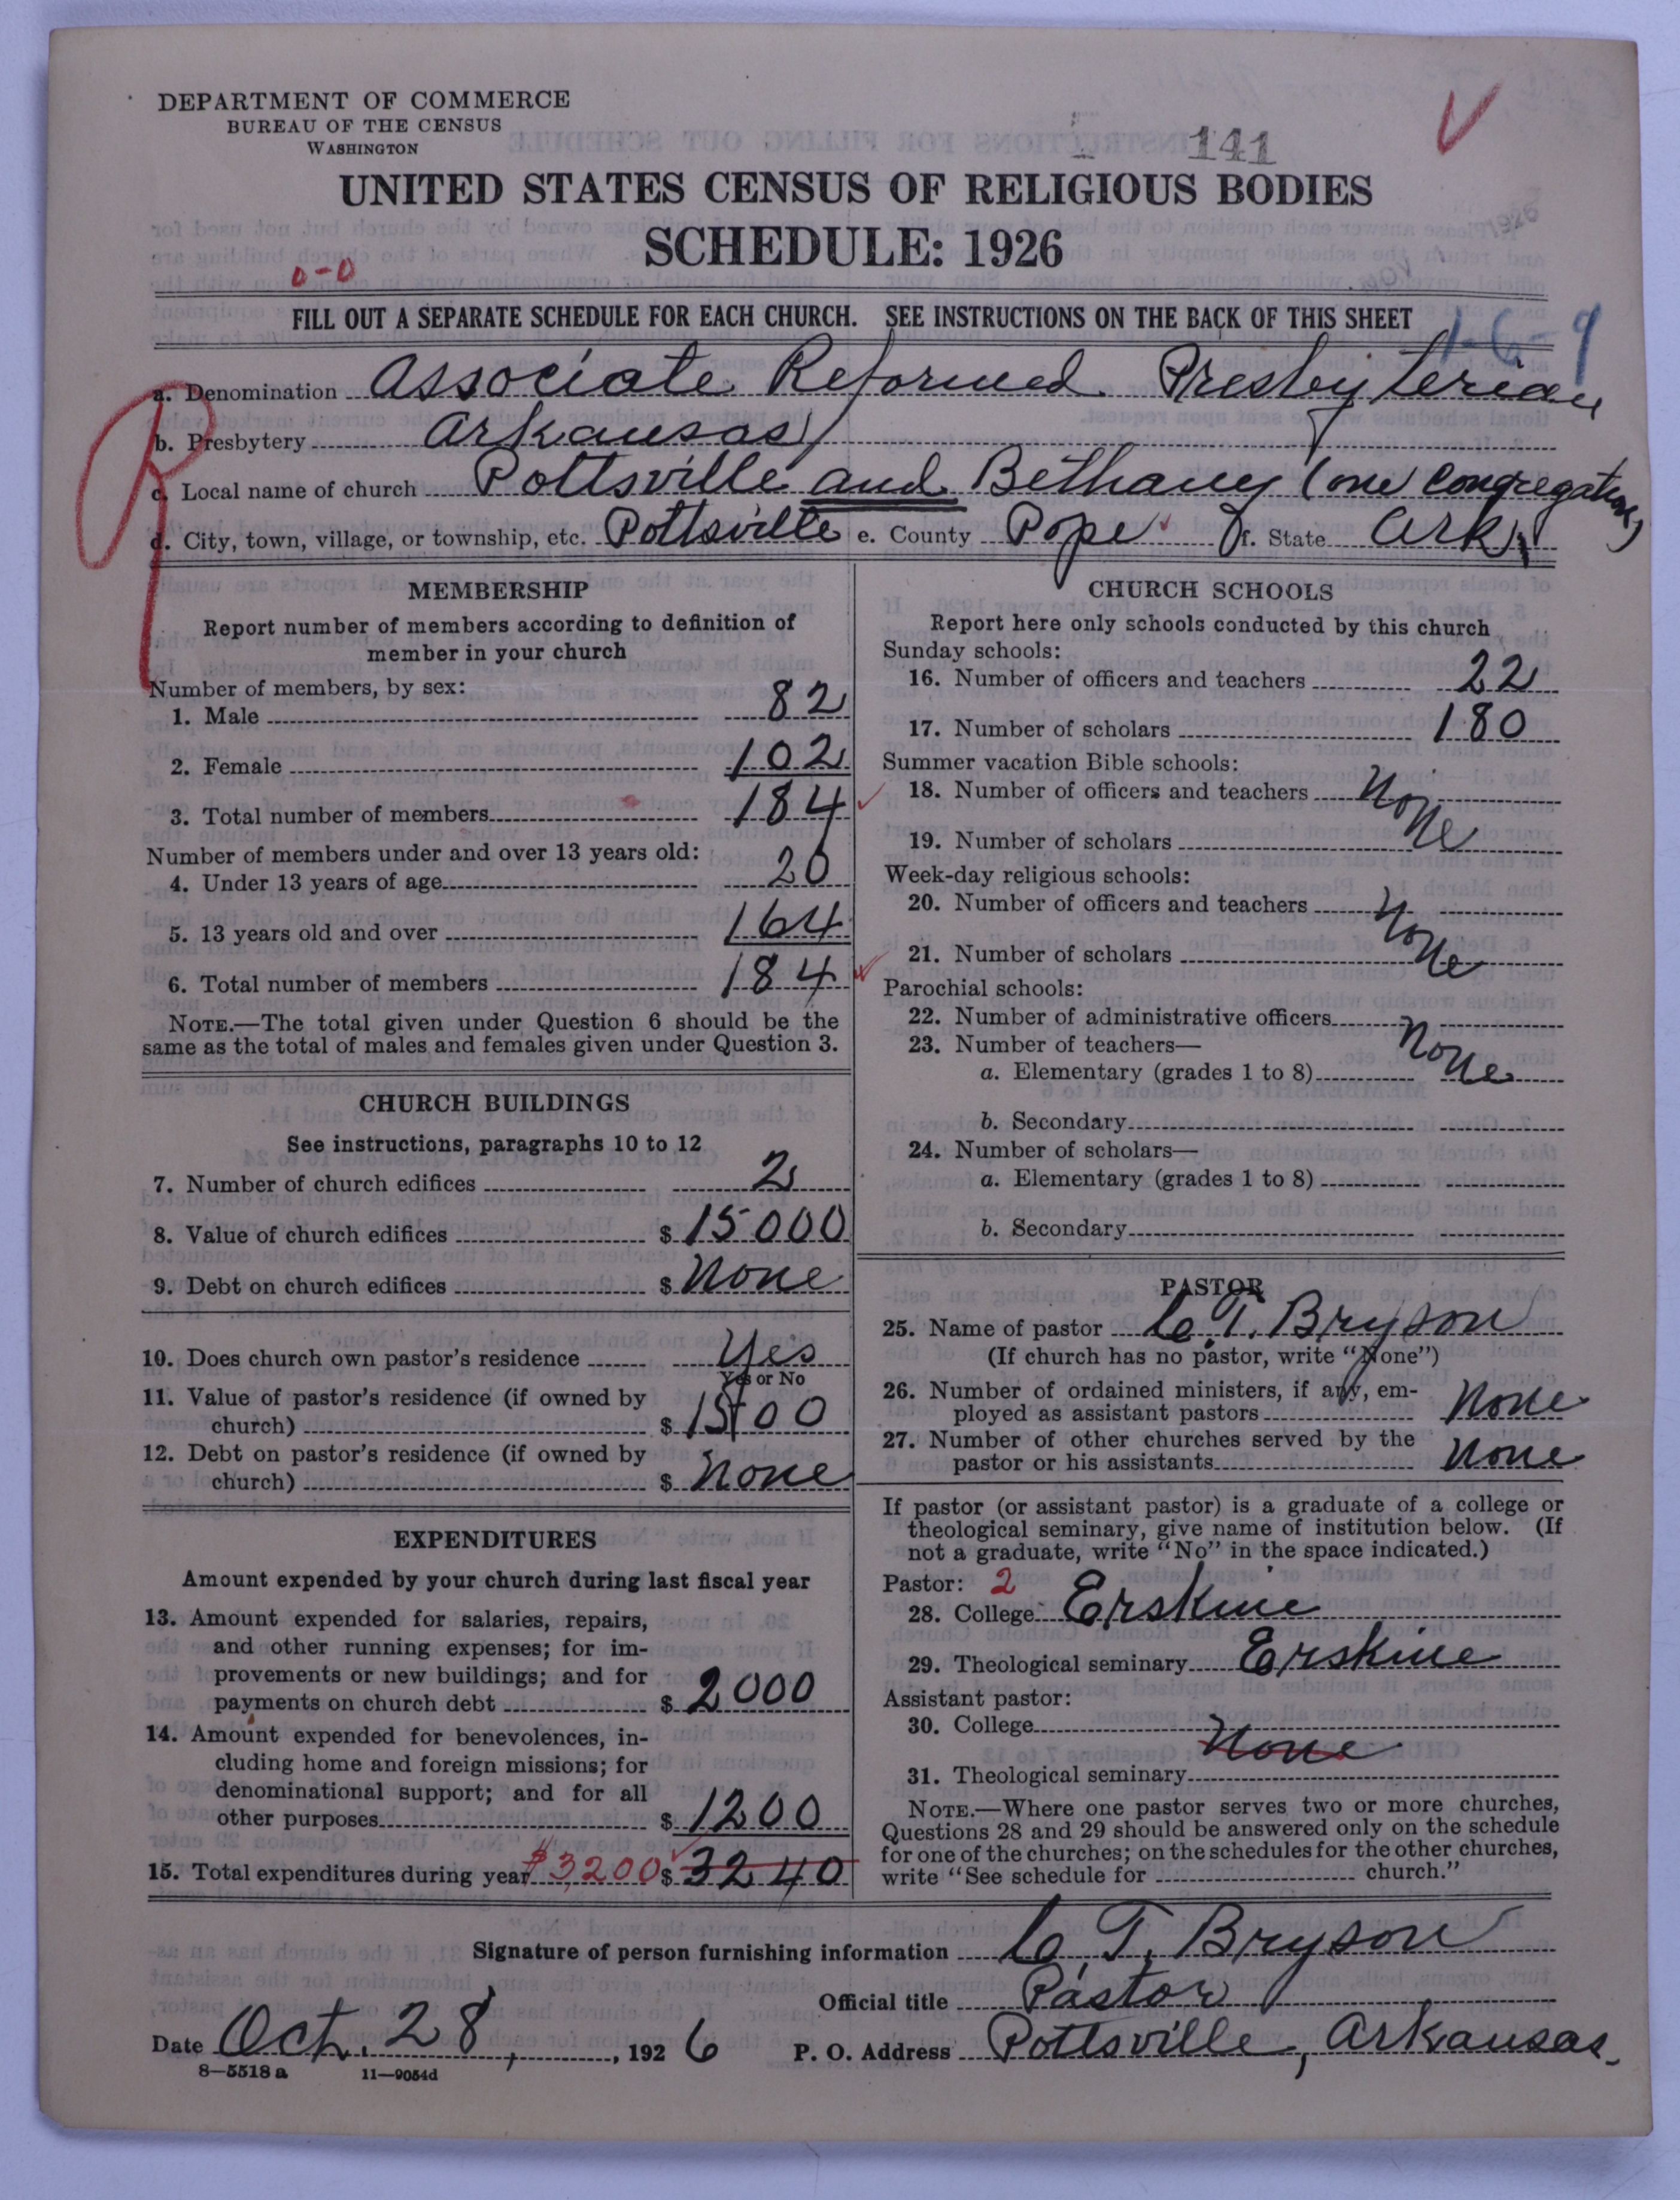 DEPARTMENT OF COMMERCE
BUREAU OF THE CENSUS
WASHINGTON
141
UNITED STATES CENSUS OF RELIGIOUS BODIES
SCHEDULE: 1926
0-0
FILL OUT A SEPARATE SCHEDULE FOR EACH CHURCH. SEE INSTRUCTIONS ON THE BACK OF THIS SHEET
1-6-9
a. Denomination Associate Reformed Presbyterian
b. Presbytery Arkansas
c. Local name of church Pottsville and Bethany (one Congregation)
d. City, town, village, or township, etc. Pottsville e. County Pope f. State Ark.
MEMBERSHIP
Report number of members according to definition of
member in your church
Number of members, by sex:
1. Male 82
2. Female 102
3. Total number of members 184
Number of members under and over 13 years old:
4. Under 13 years of age 20
5. 13 years old and over 164
6. Total number of members 184
NOTE.—The total given under Question 6 should be the
same as the total of males and females given under Question 3.
CHURCH BUILDINGS
See instructions, paragraphs 10 to 12
7. Number of church edifices 2
8. Value of church edifices $ 15000
9. Debt on church edifices $ None
10. Does church own pastor's residence Yes
Yes or No
11. Value of pastor's residence (if owned by
church) $ 1500
12. Debt on pastor's residence (if owned by
church) $ None
EXPENDITURES
Amount expended by your church during last fiscal year
13. Amount expended for salaries, repairs,
and other running expenses; for im-
provements or new buildings; and for
payments on church debt $ 2000
14. Amount expended for benevolences, in-
cluding home and foreign missions; for
denominational support; and for all
other purposes $ 1200
15. Total expenditures during year $3200 $ 3240
CHURCH SCHOOLS
Report here only schools conducted by this church
Sunday schools:
16. Number of officers and teachers 22
17. Number of scholars 180
Summer vacation Bible schools:
18. Number of officers and teachers None
19. Number of scholars
Week-day religious schools:
20. Number of officers and teachers None
21. Number of scholars
Parochial schools:
22. Number of administrative officers None
23. Number of teachers—
a. Elementary (grades 1 to 8)
b. Secondary
24. Number of scholars—
a. Elementary (grades 1 to 8)
b. Secondary
PASTOR
25. Name of pastor C. T. Bryson
(If church has no pastor, write "None")
26. Number of ordained ministers, if any, em-
ployed as assistant pastors None
27. Number of other churches served by the
pastor or his assistants None
If pastor (or assistant pastor) is a graduate of a college or
theological seminary, give name of institution below. (If
not a graduate, write "No" in the space indicated.)
Pastor: 2
28. College Erskine
29. Theological seminary Erskine
Assistant pastor:
30. College
None
31. Theological seminary
NOTE.—Where one pastor serves two or more churches,
Questions 28 and 29 should be answered only on the schedule
for one of the churches; on the schedules for the other churches,
write "See schedule for church."
Signature of person furnishing information C. T. Bryson
Official title Pastor
Date Oct. 28, 1926 P. O. Address Pottsville, Arkansas.
8—5518 a 11—9054d